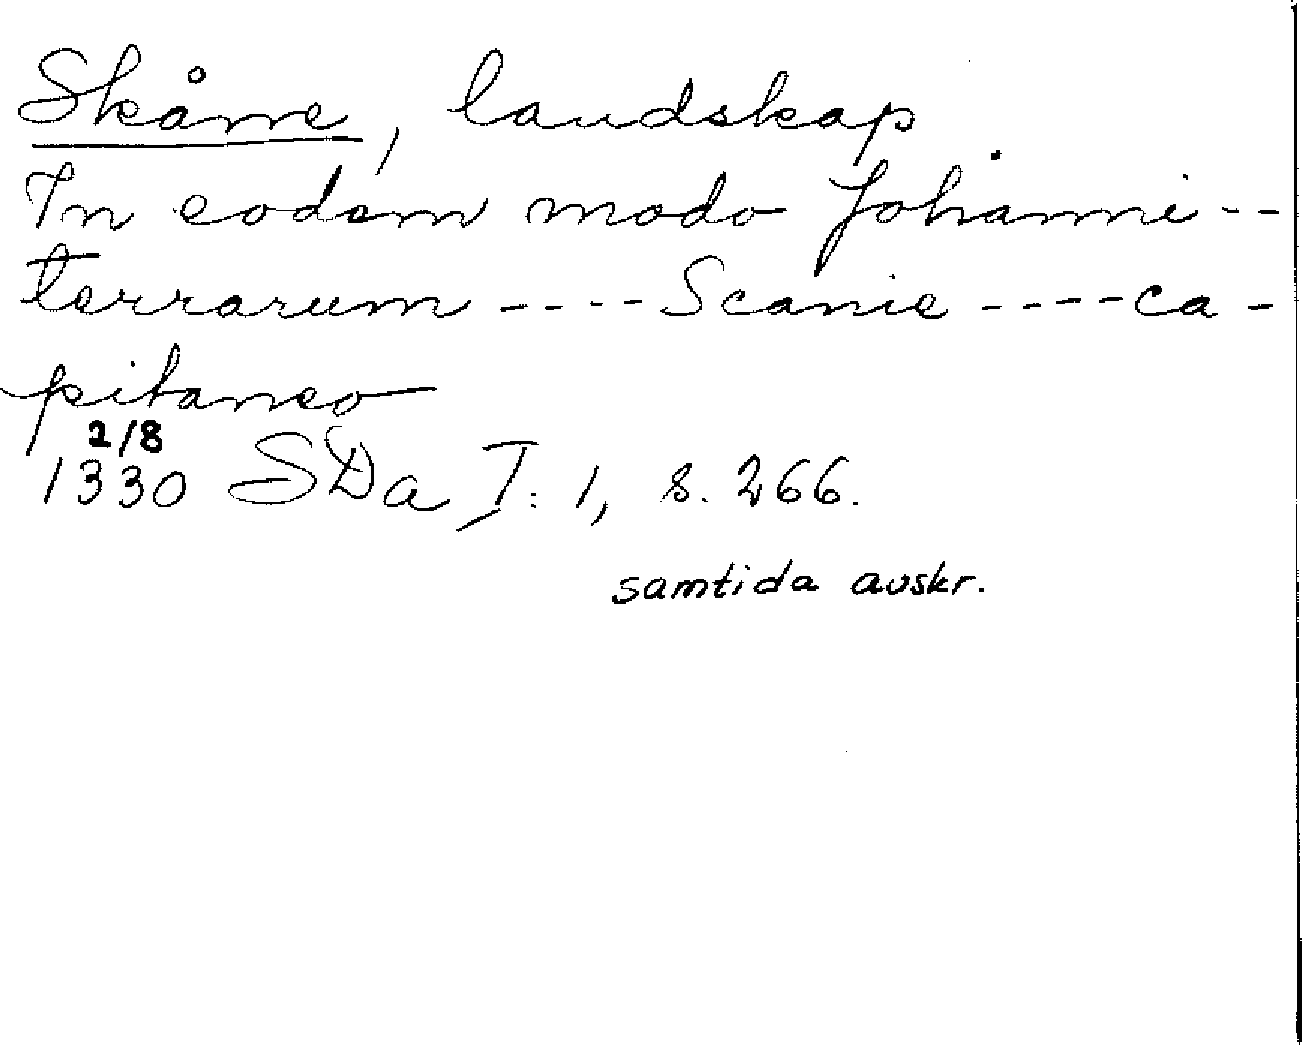 Skåne, landskap
In eodem modo Johanni --
terrarum ---- Scanie ---- ca -
pitaneo
2/8
1330 SDa I: 1, s. 266.
samtida avskr.